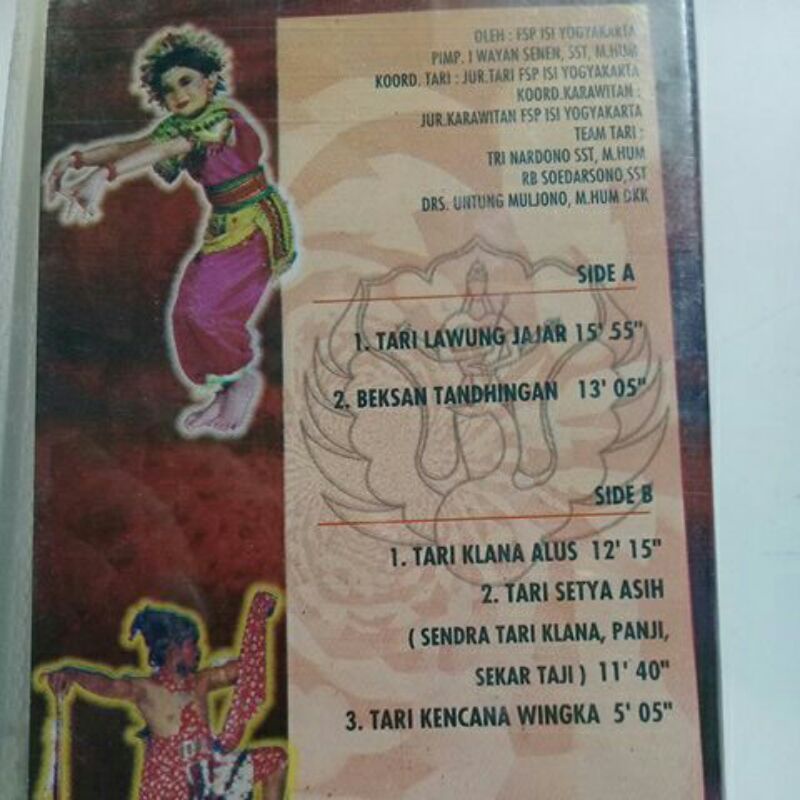 OLEH : FSP ISI YOGYAKARTA
PIMP. I WAYAN SENEN, SST, M.HUM
KOORD. TARI : JUR.TARI FSP ISI YOGYAKARTA
KOORD.KARAWITAN :
JUR.KARAWITAN FSP ISI YOGYAKARTA
TEAM TARI :
TRI NARDONO SST, M.HUM
RB SOEDARSONO,SST
DRS. UNTUNG MULJONO, M.HUM DKK
SIDE A
1. TARI LAWUNG JAJAR 15' 55"
2. BEKSAN TANDHINGAN 13' 05"
SIDE B
1. TARI KLANA ALUS 12' 15"
2. TARI SETYA ASIH
( SENDRA TARI KLANA, PANJI,
SEKAR TAJI ) 11' 40"
3. TARI KENCANA WINGKA 5' 05"